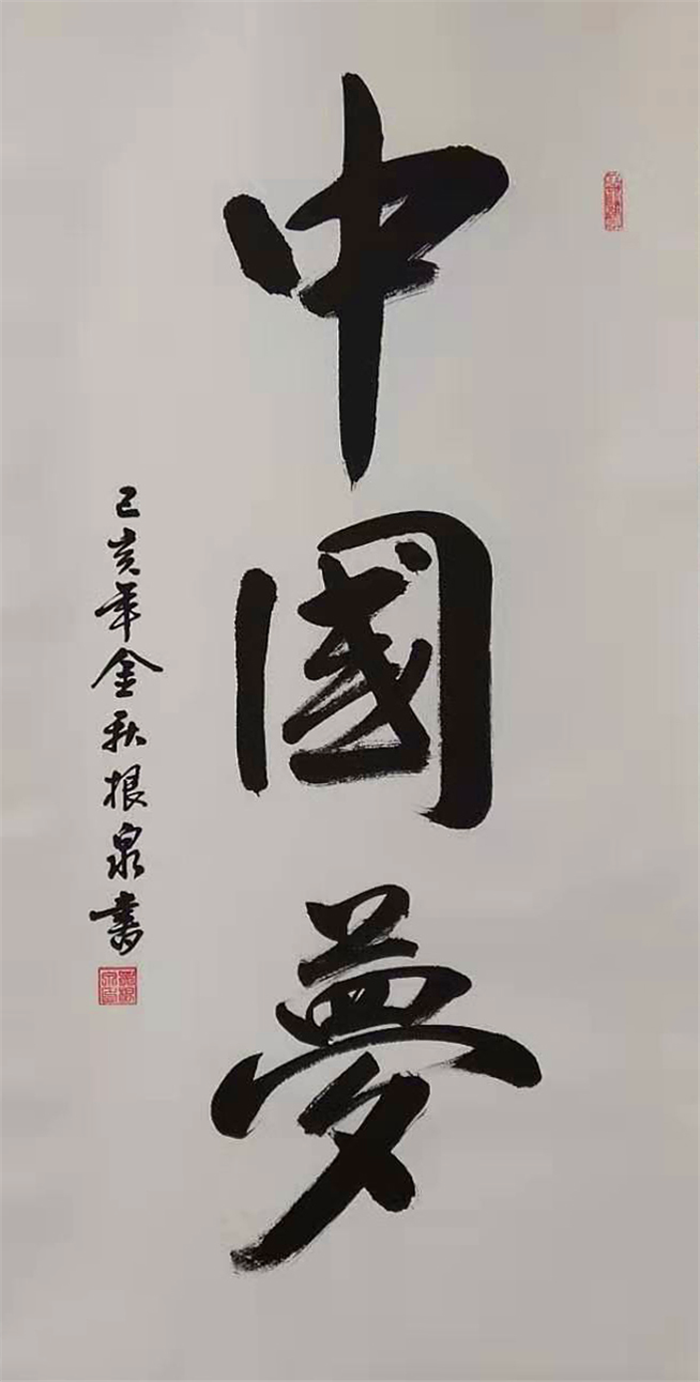 中國夢
己亥年金秋根泉書